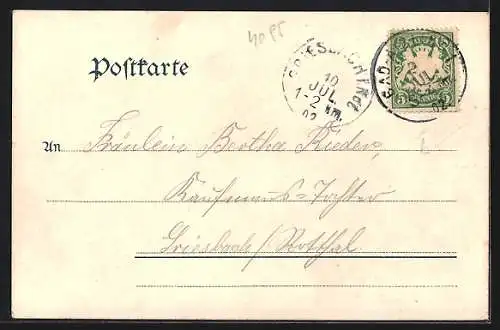 40 Pf
Postkarte
GRIESBACH i. Rott
10
JUL
1-2 Nm.
02
BAD
JUL
02
5
5
An Fräulein Bertha Rieder,
Kaufmanns-Tochter
Griesbach / Rotthal